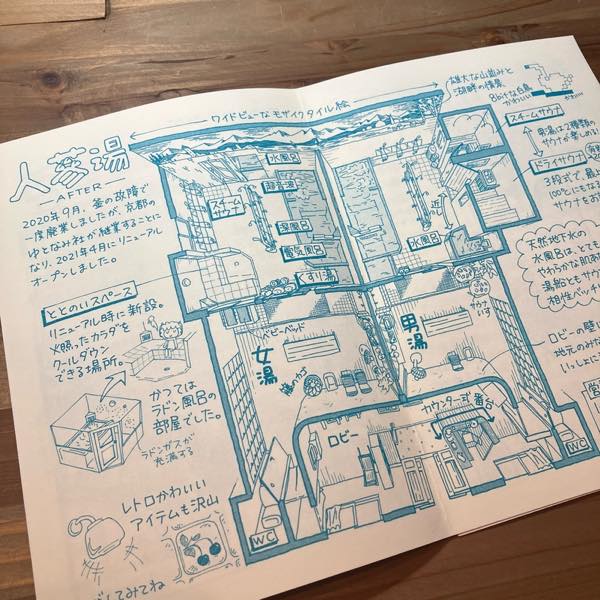 人蔘湯
AFTER
2020年9月、釜の故障で
一度廃業しましたが、京都の
ゆとなみ社が継業することに
なり、2021年4月にリニューアル
オープンしました。
ととのいスペース
リニューアル時に新設。
火照ったカラダを
クールダウン
できる場所。
かつては
ラドン風呂の
部屋でした。
ラドンガスが
充満する
レトロかわいい
アイテムも沢山
してみてね
ワイドビューなモザイクタイル絵
水風呂
スチームサウナ
超音波
温風呂
電気風呂
くすり湯
水風呂
近い
ベビーベッド
女湯
男湯
サウナ
いす
ロビー
カウンター式番台
WC
WC
雄大な山並みと
湖畔の情景
8bitな白鳥
かわいい
スチームサウナ
男湯は2種類の
サウナが楽しめる!
ドライサウナ
3段式で、最上
100℃にもなる
サウナをお
天然地下水の
水風呂は、とても
やわらかな肌あた
湯船ともサウ
相性バッチリ
ロビーの壁
地元のみな
いっしょに